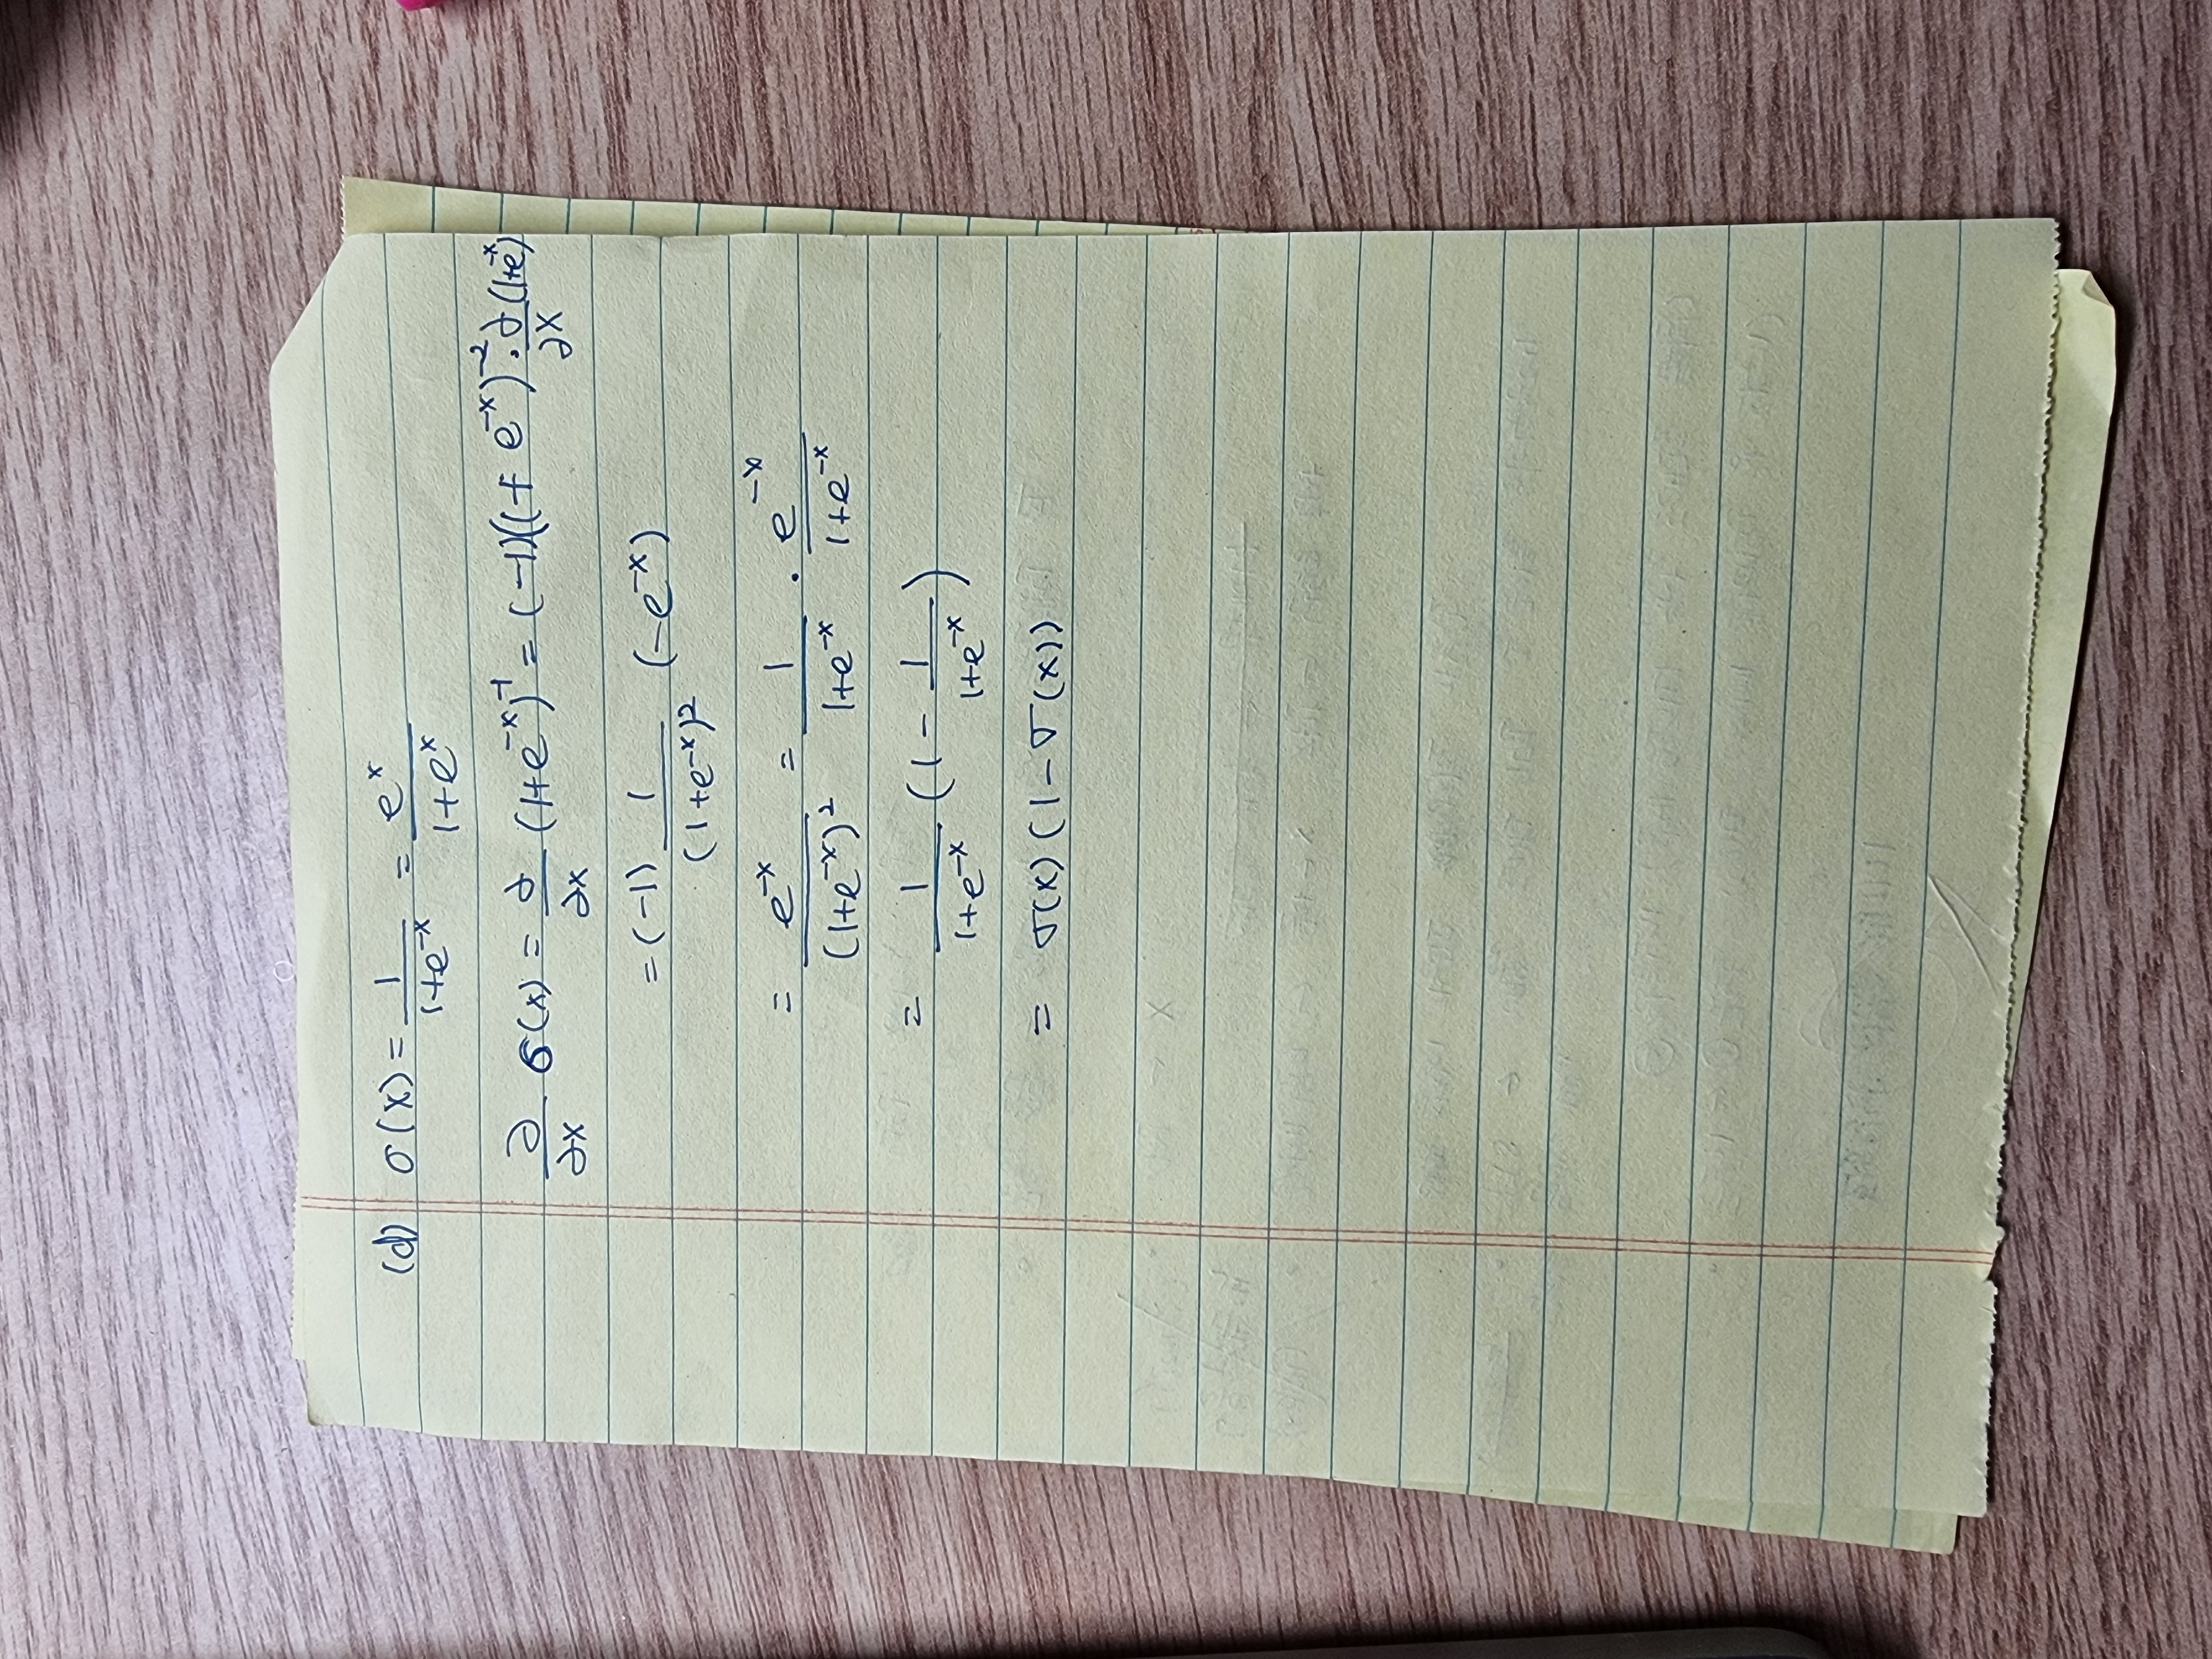 (d) σ(x) = 1/(1+e^{-x}) = e^x/(1+e^x)
∂/∂x σ(x) = ∂/∂x (1+e^{-x})^{-1} = (-1)(1+e^{-x})^{-2} · ∂/∂x (1+e^{-x})
= (-1) 1/(1+e^{-x})^2 (-e^{-x})
= e^{-x}/(1+e^{-x})^2 = 1/(1+e^{-x}) · e^{-x}/(1+e^{-x})
= 1/(1+e^{-x}) (1 - 1/(1+e^{-x}))
= σ(x)(1-σ(x))